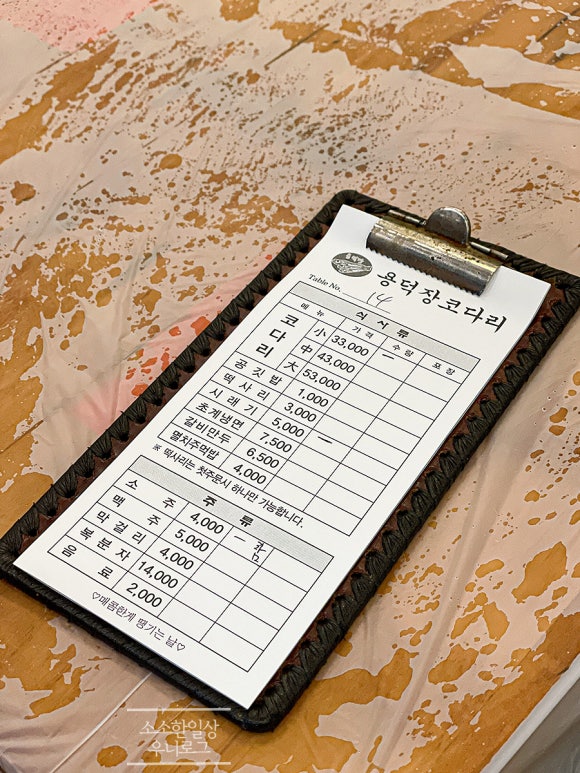 용덕장코다리
Table No. 14
식사류
메뉴 가격 수량 포장
코다리 小 33,000 一
中 43,000
大 53,000
공깃밥 1,000
떡사리 3,000
시래기 5,000 一
초계냉면 7,500
갈비만두 6,500
멸치주먹밥 4,000
※ 떡사리는 첫주문시 하나만 가능합니다.
주류
소주 4,000 一
맥주 5,000
막걸리 4,000
복분자 14,000
음료 2,000
♡매콤한게 땡기는 날♡
소소한일상
우니로그